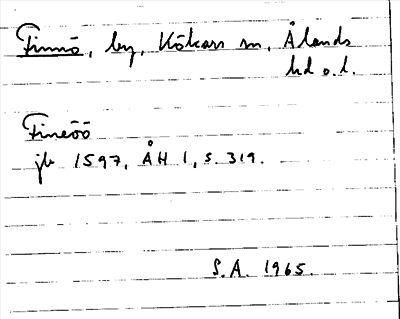 Finnö, by, Kökars sn, Ålands
hd o. l.
Fineöö
jb 1597, ÅH 1, s. 319.
S.A. 1965.